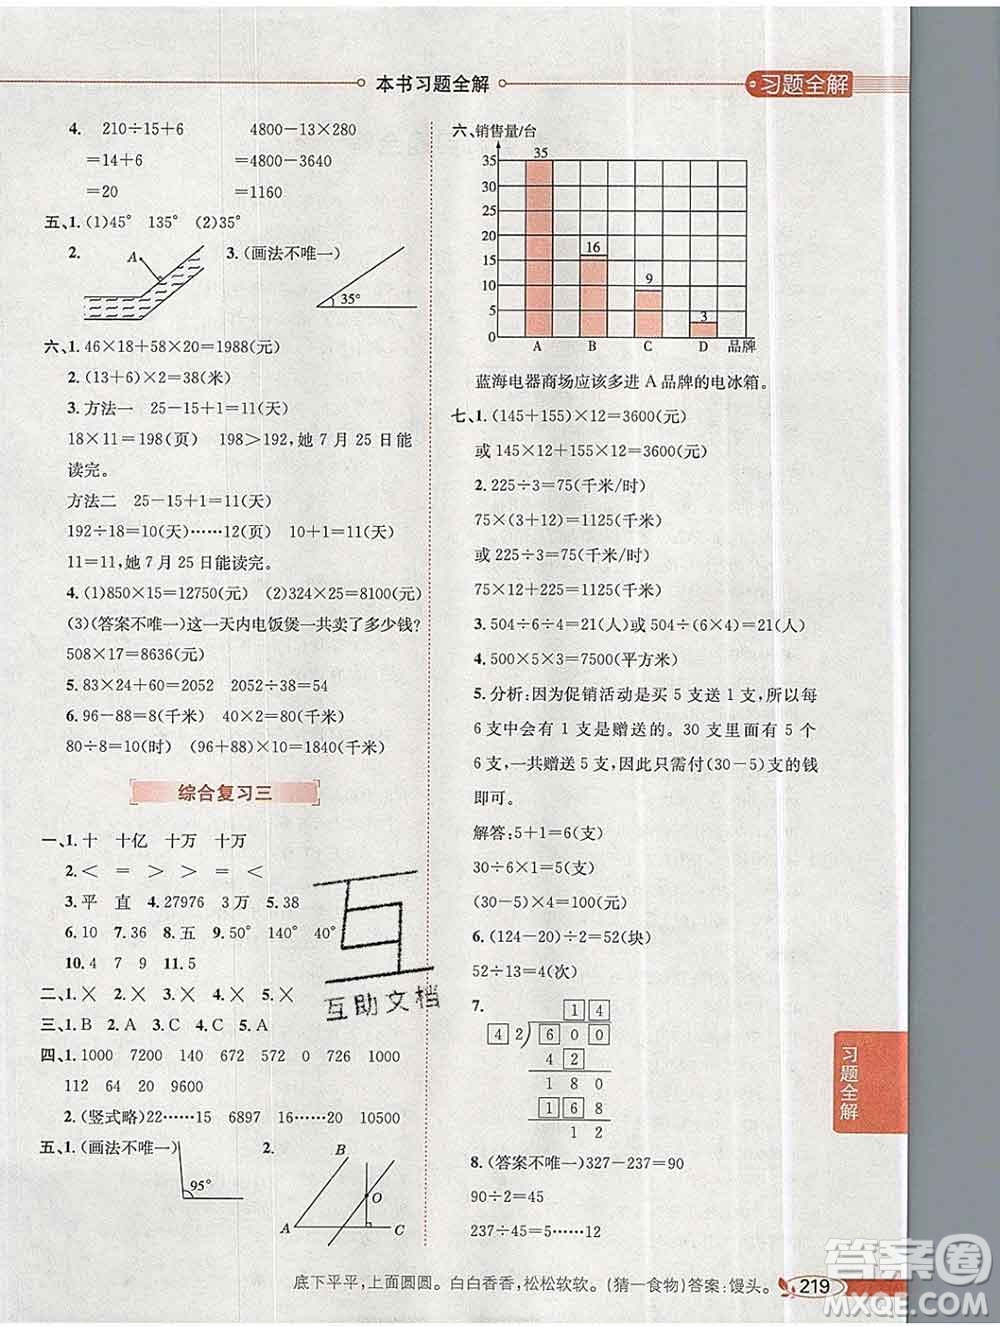 本书习题全解
习题全解
4. 210÷15+6 4800−13×280
=14+6 =4800−3640
=20 =1160
五、1. (1)45° 135° (2)35°
2. A 3. (画法不唯一)
35°
六、1. 46×18+58×20=1988(元)
2. (13+6)×2=38(米)
3. 方法一 25−15+1=11(天)
18×11=198(页) 198>192,她 7 月 25 日能
读完。
方法二 25−15+1=11(天)
192÷18=10(天)……12(页) 10+1=11(天)
11=11,她 7 月 25 日能读完。
4. (1)850×15=12750(元) (2)324×25=8100(元)
(3)(答案不唯一)这一天内电饭煲一共卖了多少钱?
508×17=8636(元)
5. 83×24+60=2052 2052÷38=54
6. 96−88=8(千米) 40×2=80(千米)
80÷8=10(时) (96+88)×10=1840(千米)
综合复习三
一、1. 十 十亿 十万 十万
2. < = > > < =
3. 平 直 4. 27976 3 万 5. 38
6. 10 7. 36 8. 五 9. 50° 140° 40°
10. 4 7 9 11. 5
二、1. × 2. × 3. × 4. × 5. ×
三、1. B 2. A 3. C 4. C 5. A
四、1. 1000 7200 140 32 0 726 1000
112 64 20 9600
2. (竖式略)22……15 6897 16……20 10500
五、1. (画法不唯一) 2.
95°
B
O
A C
六、销售量/台
35
30
25
20
15
10
5
0
35
16
9
3
A B C D 品牌
蓝海电器商场应该多进 A 品牌的电冰箱。
七、1. (145+155)×12=3600(元)
或 145×12+155×12=3600(元)
2. 225÷3=75(千米/时)
75×(3+12)=1125(千米)
或 225÷3=75(千米/时)
75×12+225=1125(千米)
3. 504÷6÷4=21(人)或 504÷(6×4)=21(人)
4. 500×5×3=7500(平方米)
5. 分析:因为促销活动是买 5 支送 1 支,所以每
6 支中会有 1 支是赠送的。30 支里面有 5 个
6 支,一共赠送 5 支,因此只需付(30−5)支的钱
即可。
解答:5+1=6(支)
30÷6×1=5(支)
(30−5)×4=100(元)
6. (124−20)÷2=52(块)
52÷13=4(次)
7.
1 4
4 2 6 0 0
4 2
1 8 0
1 6 8
1 2
8. (答案不唯一)327−237=90
90÷2=45
237÷45=5……12
习题全解
底下平平,上面圆圆。白白香香,松松软软。(猜一食物)答案:馒头。
219
互
互助文档
答案圈
MXQE.COM